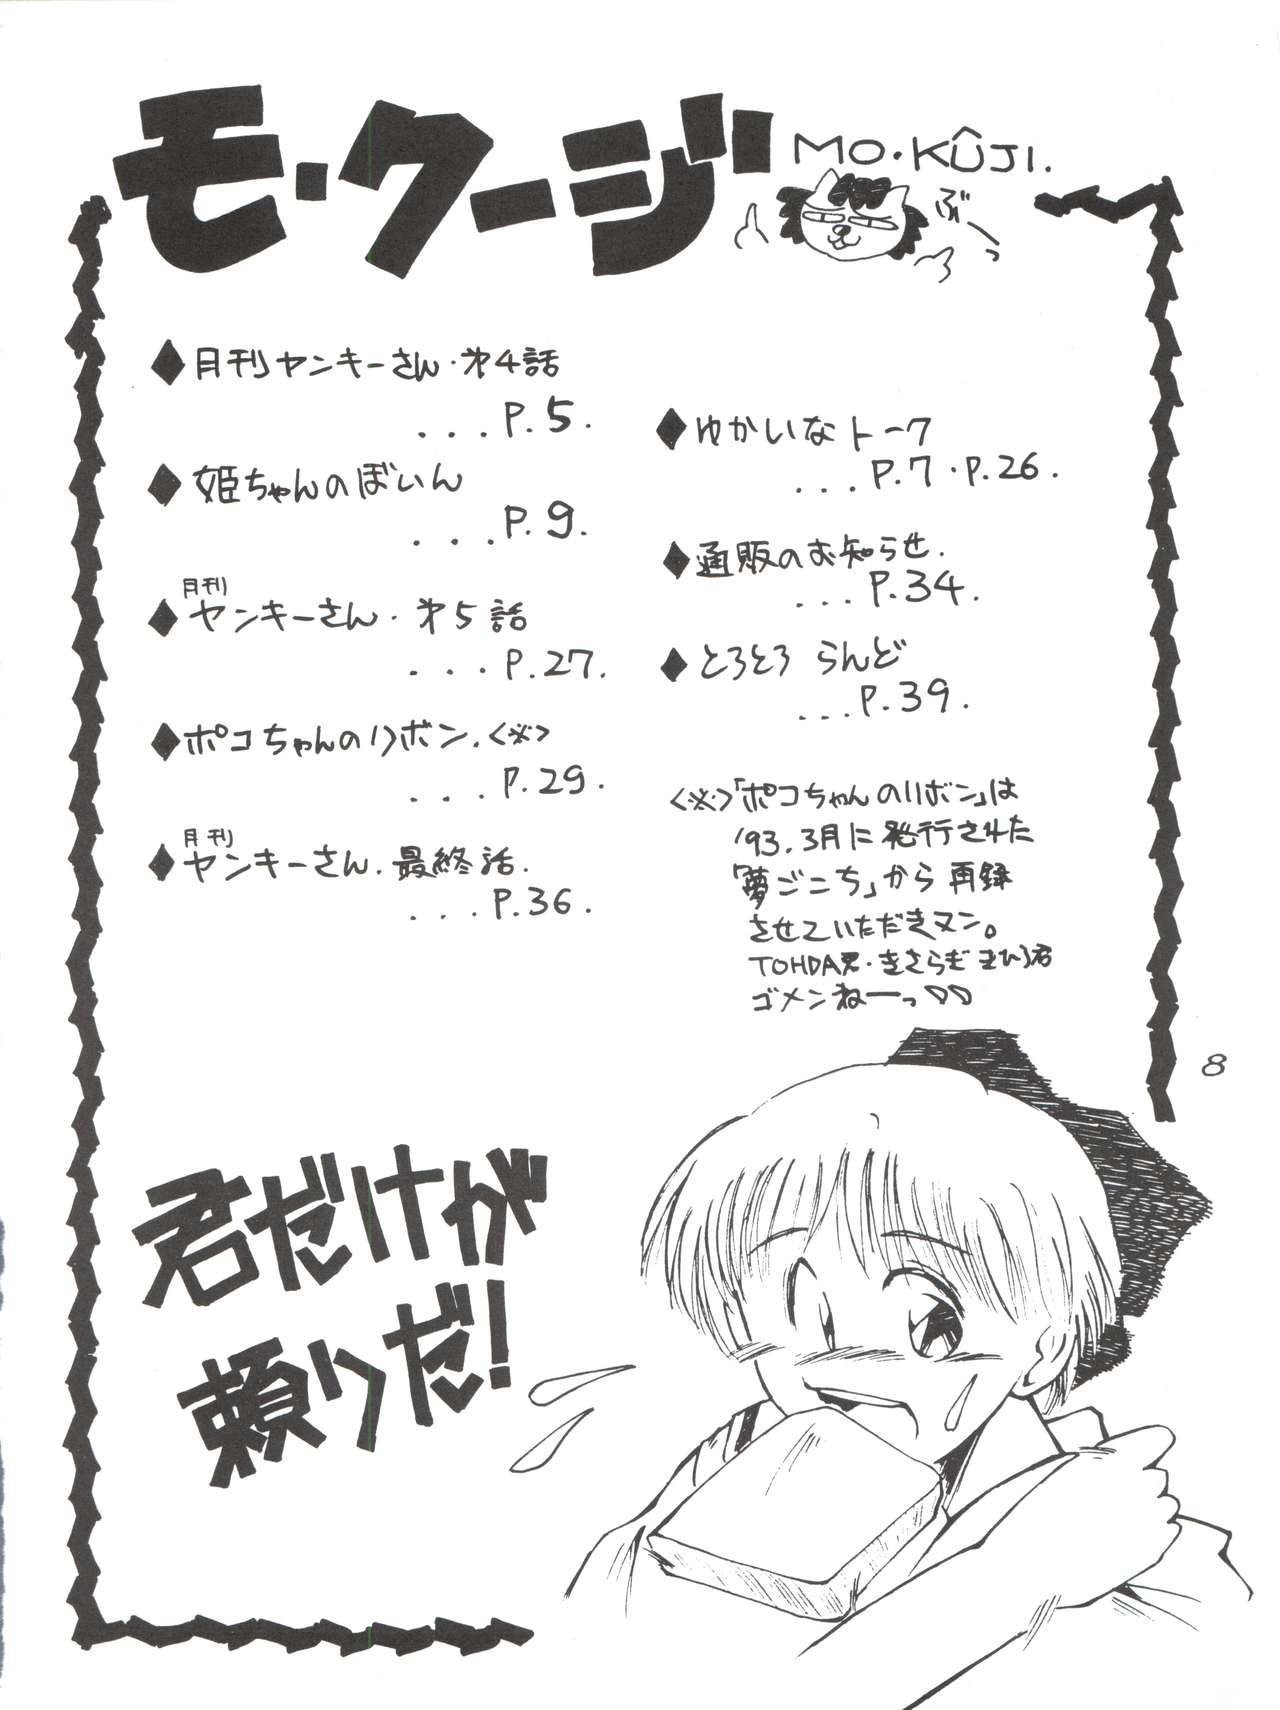 モ・クージ
MO・KÛJI.
ぶーっ
◆月刊ヤンキーさん・オ4話
...P.5.
◆姫ちゃんのぼいん
...P.9.
月刊
◆ヤンキーさん・オ5話
...P.27.
◆ポコちゃんのリボン.<※>
...P.29.
月刊
◆ヤンキーさん.最終話.
...P.36.
◆ゆかいなトーク
...P.7・P.26.
◆通販のお知らせ.
...P.34.
◆とろとろ らんど
...P.39.
<※>「ポコちゃんのリボン」は
'93.3月に発行された
「夢ごこち」から再録
させていただきマン。
TOHDA君・きさらぎまひろ君
ゴメンねーっ♡♡
8
君だけが
頼りだ!